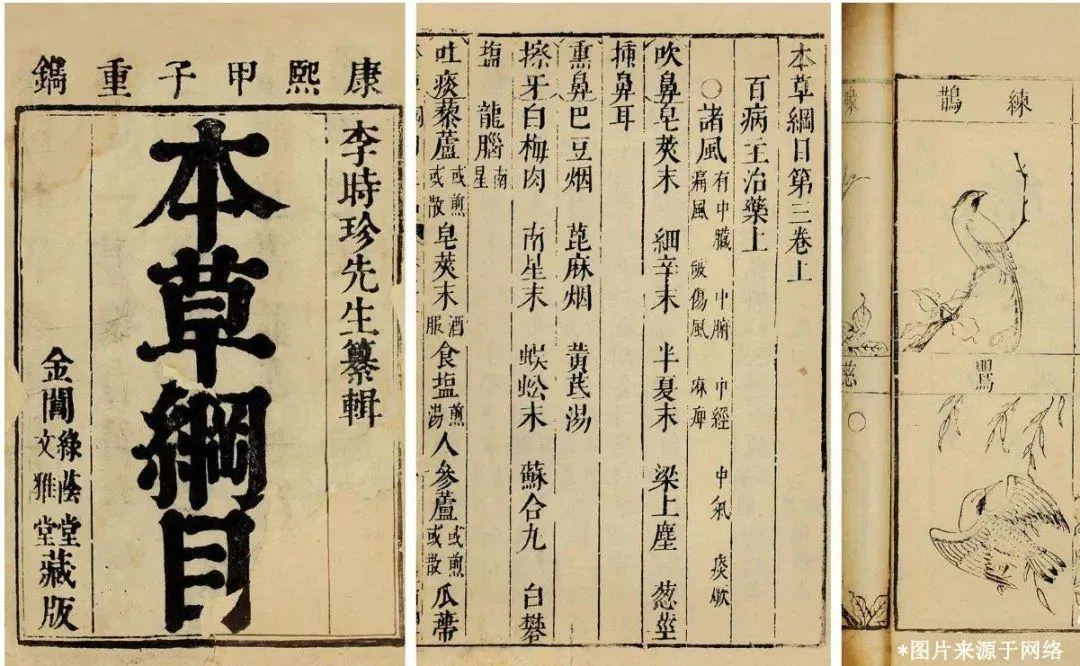 康熙甲子重鐫
李時珍先生纂輯
本草綱目
金閶
綠蔭堂
文雅堂
藏版
本草綱目第三卷上
百病主治藥上
○諸風 有中臟 中腑 中經 中氣 痰厥
痛風 破傷風 麻痺
吹鼻皂莢末 細辛末 半夏末 梁上塵 葱莖
揷鼻耳
熏鼻巴豆烟 萞麻烟 黃芪湯
擦牙白梅肉 南星末 蜈蚣末 蘇合丸 白礬
塩 龍腦南星
吐痰藜蘆或煎或散 皂莢末酒服 食塩煎湯 人參蘆或煎或散 瓜蔕
練鵲
鸎
*图片来源于网络